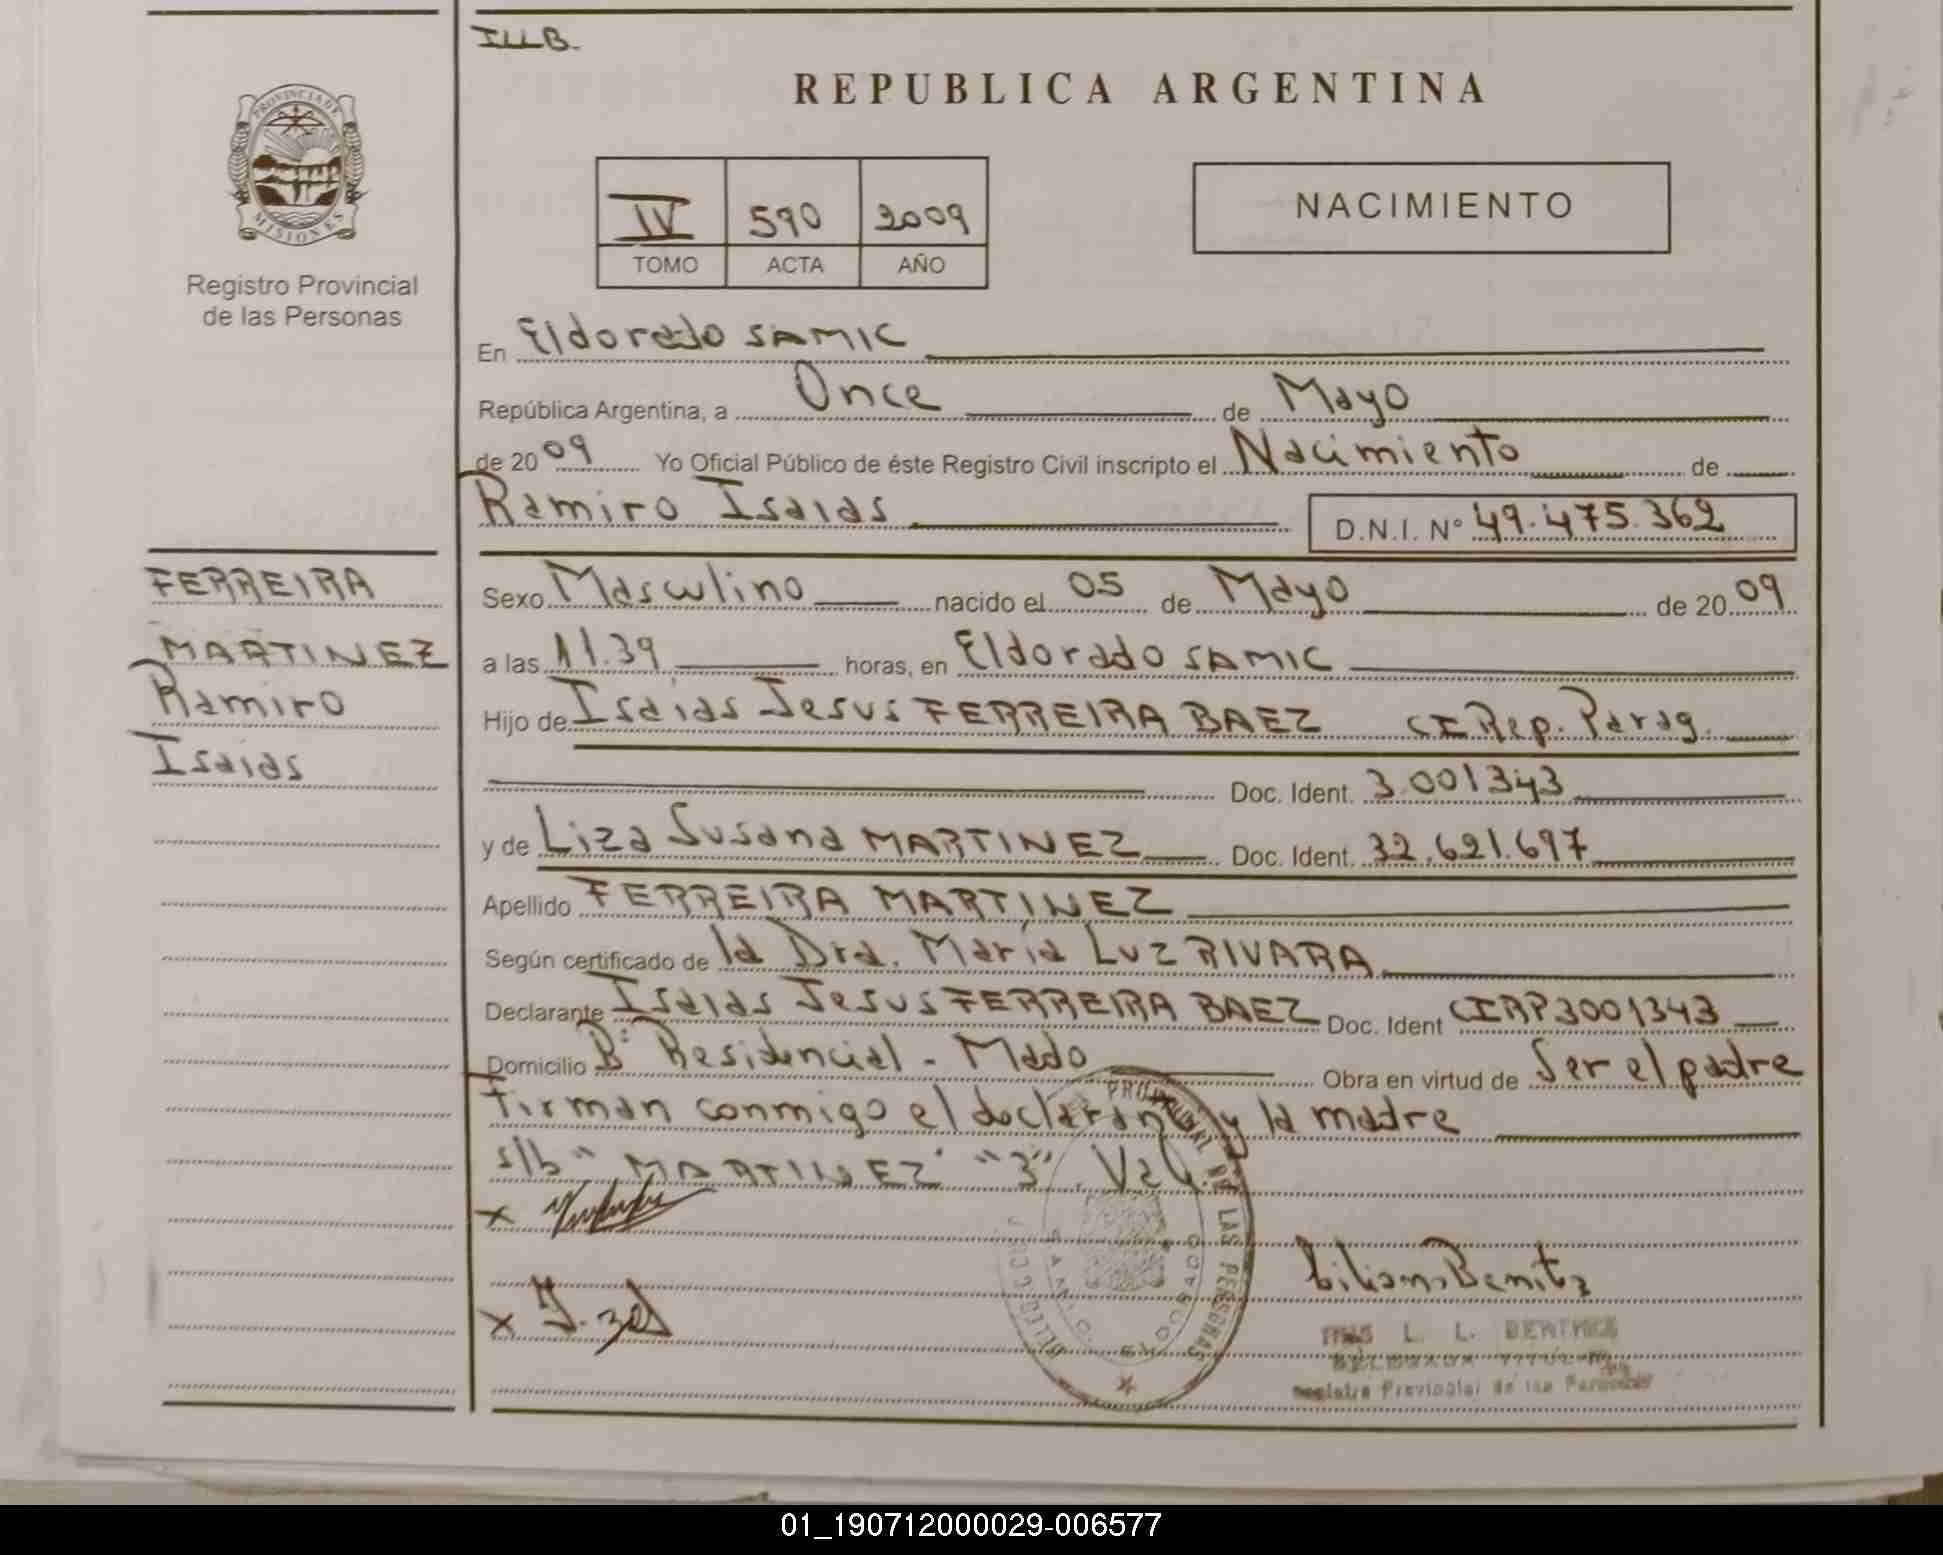 ILLB.
REPUBLICA ARGENTINA
PROVINCIA DE
MISIONES
IV 590 2009
TOMO ACTA AÑO
NACIMIENTO
Registro Provincial
de las Personas
En Eldorado SAMIC
República Argentina, a Once de Mayo
de 2009 Yo Oficial Público de éste Registro Civil inscripto el Nacimiento de
Ramiro Isaias D.N.I. Nº 49.475.362
FERREIRA
MARTINEZ
Ramiro
Isaias
Sexo Masculino nacido el 05 de Mayo de 2009
a las 11.39 horas, en Eldorado SAMIC
Hijo de Isaías Jesus FERREIRA BAEZ CI Rep. Parag.
Doc. Ident. 3.001343
y de Liza Susana MARTINEZ Doc. Ident. 32.621.697
Apellido FERREIRA MARTINEZ
Según certificado de la Dra. María Luz RIVARA
Declarante Isaias Jesus FERREIRA BAEZ Doc. Ident CIRP3001343
Domicilio Bº Residencial - Mado Obra en virtud de Ser el padre
Firman conmigo el declarante y la madre
s/b "MARTINEZ" "3". Vale
x
Liliana Benitez
x
DE LAS PERSONAS
ELDORADO
L. L.
Registro Provincial de las Personas
01_190712000029-006577